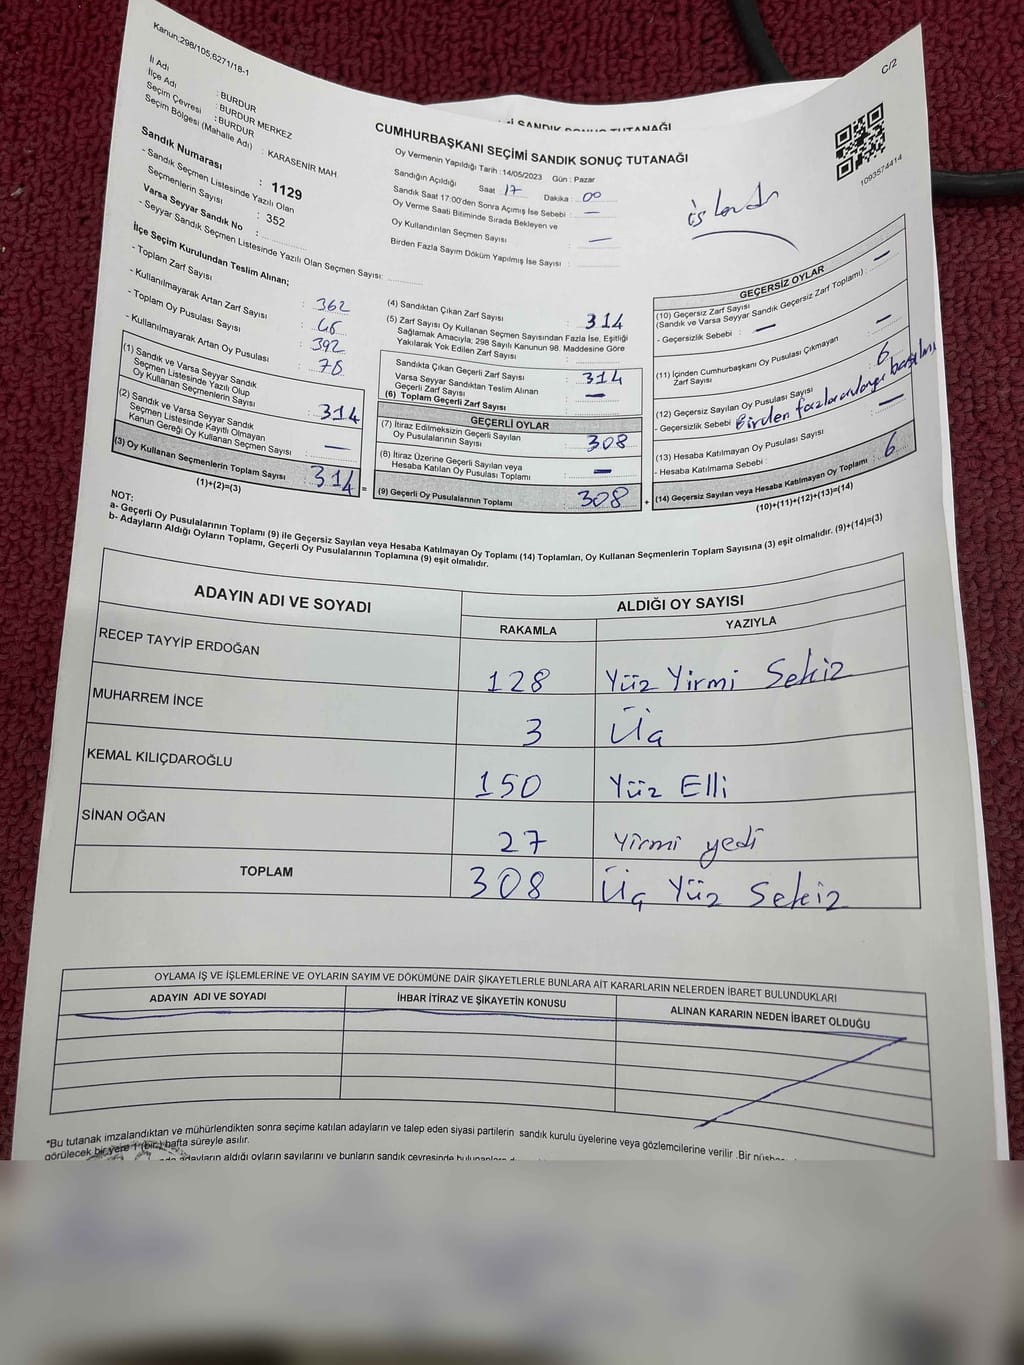 Kanun:298/105,6271/18-1
C/2
İl Adı : BURDUR
İlçe Adı : BURDUR MERKEZ
Seçim Çevresi : BURDUR
Seçim Bölgesi (Mahalle Adı) : KARASENİR MAH
SANDIK SONUÇ TUTANAĞI
CUMHURBAŞKANI SEÇİMİ SANDIK SONUÇ TUTANAĞI
1093574414
Sandık Numarası : 1129
- Sandık Seçmen Listesinde Yazılı Olan
Seçmenlerin Sayısı : 352
Varsa Seyyar Sandık No :
- Seyyar Sandık Seçmen Listesinde Yazılı Olan Seçmen Sayısı:
Oy Vermenin Yapıldığı Tarih : 14/05/2023 Gün : Pazar
Sandığın Açıldığı Saat : 17 Dakika : 00
Sandık Saat 17:00'den Sonra Açımış İse Sebebi : —
Oy Verme Saati Bitiminde Sırada Bekleyen ve
Oy Kullandırılan Seçmen Sayısı : —
Birden Fazla Sayım Döküm Yapılmış İse Sayısı :
İlçe Seçim Kurulundan Teslim Alınan;
- Toplam Zarf Sayısı : 362
- Kullanılmayarak Artan Zarf Sayısı :
- Toplam Oy Pusulası Sayısı : 392
- Kullanılmayarak Artan Oy Pusulası : 78
(1) Sandık ve Varsa Seyyar Sandık
Seçmen Listesinde Yazılı Olup
Oy Kullanan Seçmenlerin Sayısı : 314
(2) Sandık ve Varsa Seyyar Sandık
Seçmen Listesinde Kayıtlı Olmayan
Kanun Gereği Oy Kullanan Seçmen Sayısı : —
(3) Oy Kullanan Seçmenlerin Toplam Sayısı : 314
(1)+(2)=(3)
=
(4) Sandıktan Çıkan Zarf Sayısı : 314
(5) Zarf Sayısı Oy Kullanan Seçmen Sayısından Fazla İse, Eşitliği
Sağlamak Amacıyla; 298 Sayılı Kanunun 98. Maddesine Göre
Yakılarak Yok Edilen Zarf Sayısı :
Sandıkta Çıkan Geçerli Zarf Sayısı : 314
Varsa Seyyar Sandıktan Teslim Alınan
Geçerli Zarf Sayısı : —
(6) Toplam Geçerli Zarf Sayısı :
GEÇERLİ OYLAR
(7) İtiraz Edilmeksizin Geçerli Sayılan
Oy Pusulalarının Sayısı : 308
(8) İtiraz Üzerine Geçerli Sayılan veya
Hesaba Katılan Oy Pusulası Toplamı : —
(9) Geçerli Oy Pusulalarının Toplamı : 308
+
GEÇERSİZ OYLAR
(10) Geçersiz Zarf Sayısı
(Sandık ve Varsa Seyyar Sandık Geçersiz Zarf Toplamı) : —
- Geçersizlik Sebebi : —
(11) İçinden Cumhurbaşkanı Oy Pusulası Çıkmayan
Zarf Sayısı : —
(12) Geçersiz Sayılan Oy Pusulası Sayısı : 6
- Geçersizlik Sebebi : Birden fazla
(13) Hesaba Katılmayan Oy Pusulası Sayısı : —
- Hesaba Katılmama Sebebi :
(14) Geçersiz Sayılan veya Hesaba Katılmayan Oy Toplamı : 6
(10)+(11)+(12)+(13)=(14)
NOT:
a- Geçerli Oy Pusulalarının Toplamı (9) ile Geçersiz Sayılan veya Hesaba Katılmayan Oy Toplamı (14) Toplamları, Oy Kullanan Seçmenlerin Toplam Sayısına (3) eşit olmalıdır. (9)+(14)=(3)
b- Adayların Aldığı Oyların Toplamı, Geçerli Oy Pusulalarının Toplamına (9) eşit olmalıdır.
ADAYIN ADI VE SOYADI ALDIĞI OY SAYISI
RAKAMLA YAZIYLA
RECEP TAYYİP ERDOĞAN 128 Yüz Yirmi Sekiz
MUHARREM İNCE 3 Üç
KEMAL KILIÇDAROĞLU 150 Yüz Elli
SİNAN OĞAN 27 Yirmi yedi
TOPLAM 308 Üç Yüz Sekiz
OYLAMA İŞ VE İŞLEMLERİNE VE OYLARIN SAYIM VE DÖKÜMÜNE DAİR ŞİKAYETLERLE BUNLARA AİT KARARLARIN NELERDEN İBARET BULUNDUKLARI
ADAYIN ADI VE SOYADI İHBAR İTİRAZ VE ŞİKAYETİN KONUSU ALINAN KARARIN NEDEN İBARET OLDUĞU
*Bu tutanak imzalandıktan ve mühürlendikten sonra seçime katılan adayların ve talep eden siyasi partilerin sandık kurulu üyelerine veya gözlemcilerine verilir .Bir
görülecek bir yere 1 (bir) hafta süreyle asılır.
adayların aldığı oyların sayılarını ve bunların sandık çevresinde